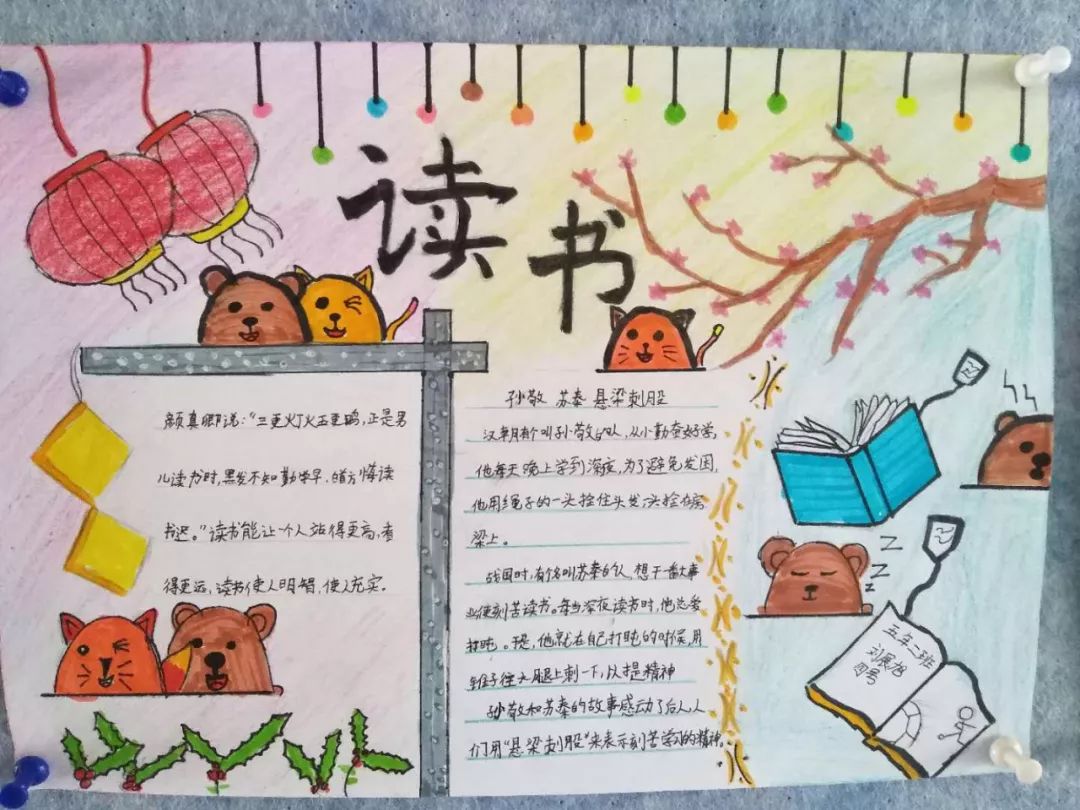 读书
颜真卿说："三更灯火五更鸡,正是男
儿读书时,黑发不知勤学早,白首方悔读
书迟。"读书能让一个人站得更高,看
得更远,读书使人明智,使人充实。
孙敬 苏秦 悬梁刺股
汉朝有个叫孙敬的人,从小勤奋好学,
他每天晚上学到深夜,为了避免发困,
他用绳子的一头拴住头发,一头拴在房
梁上。
战国时,有个名叫苏秦的人,想干一番大事
业便刻苦读书。每当深夜读书时,他总爱
打盹。于是,他就在自己打盹的时候,用
锥子往大腿上刺一下,以提精神
孙敬和苏秦的故事感动了后人,人
们用"悬梁刺股"来表示刻苦学习的精神。
Z
Z
Z
五年二班
刘展旭
四号